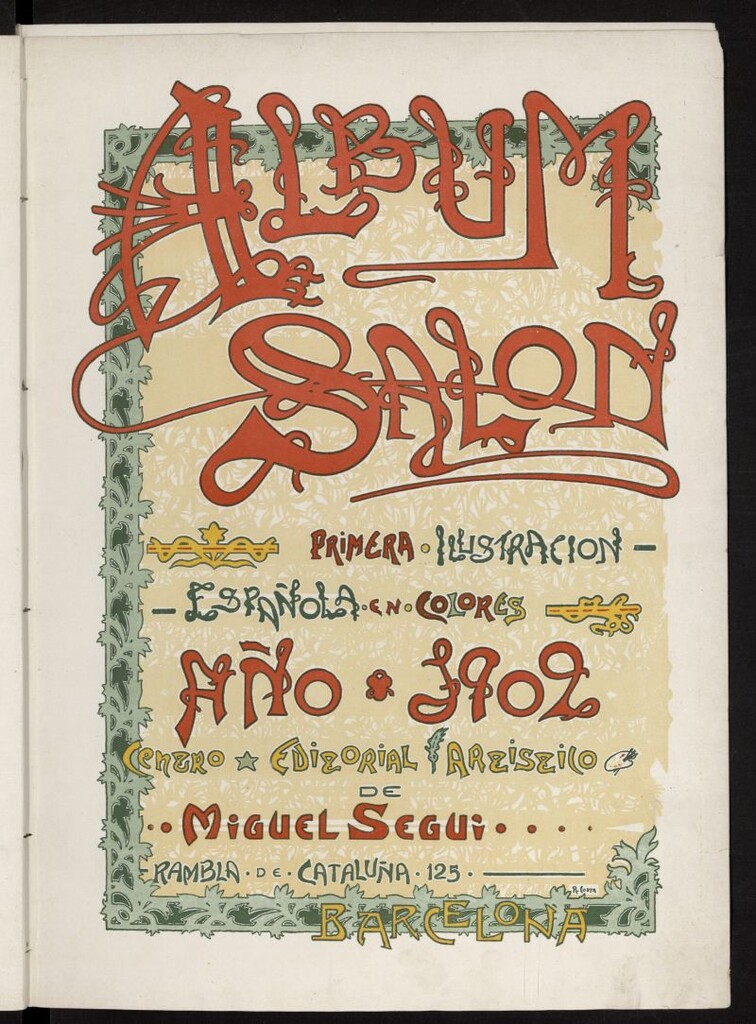 ALBUM
SALON
PRIMERA · ILUSTRACION –
– ESPAÑOLA · EN · COLORES
AÑO · 1902
CENTRO EDITORIAL ARTISTICO
DE
·· MIGUEL SEGUI · · · · ·
RAMBLA · DE · CATALUÑA · 125 ·
BARCELONA